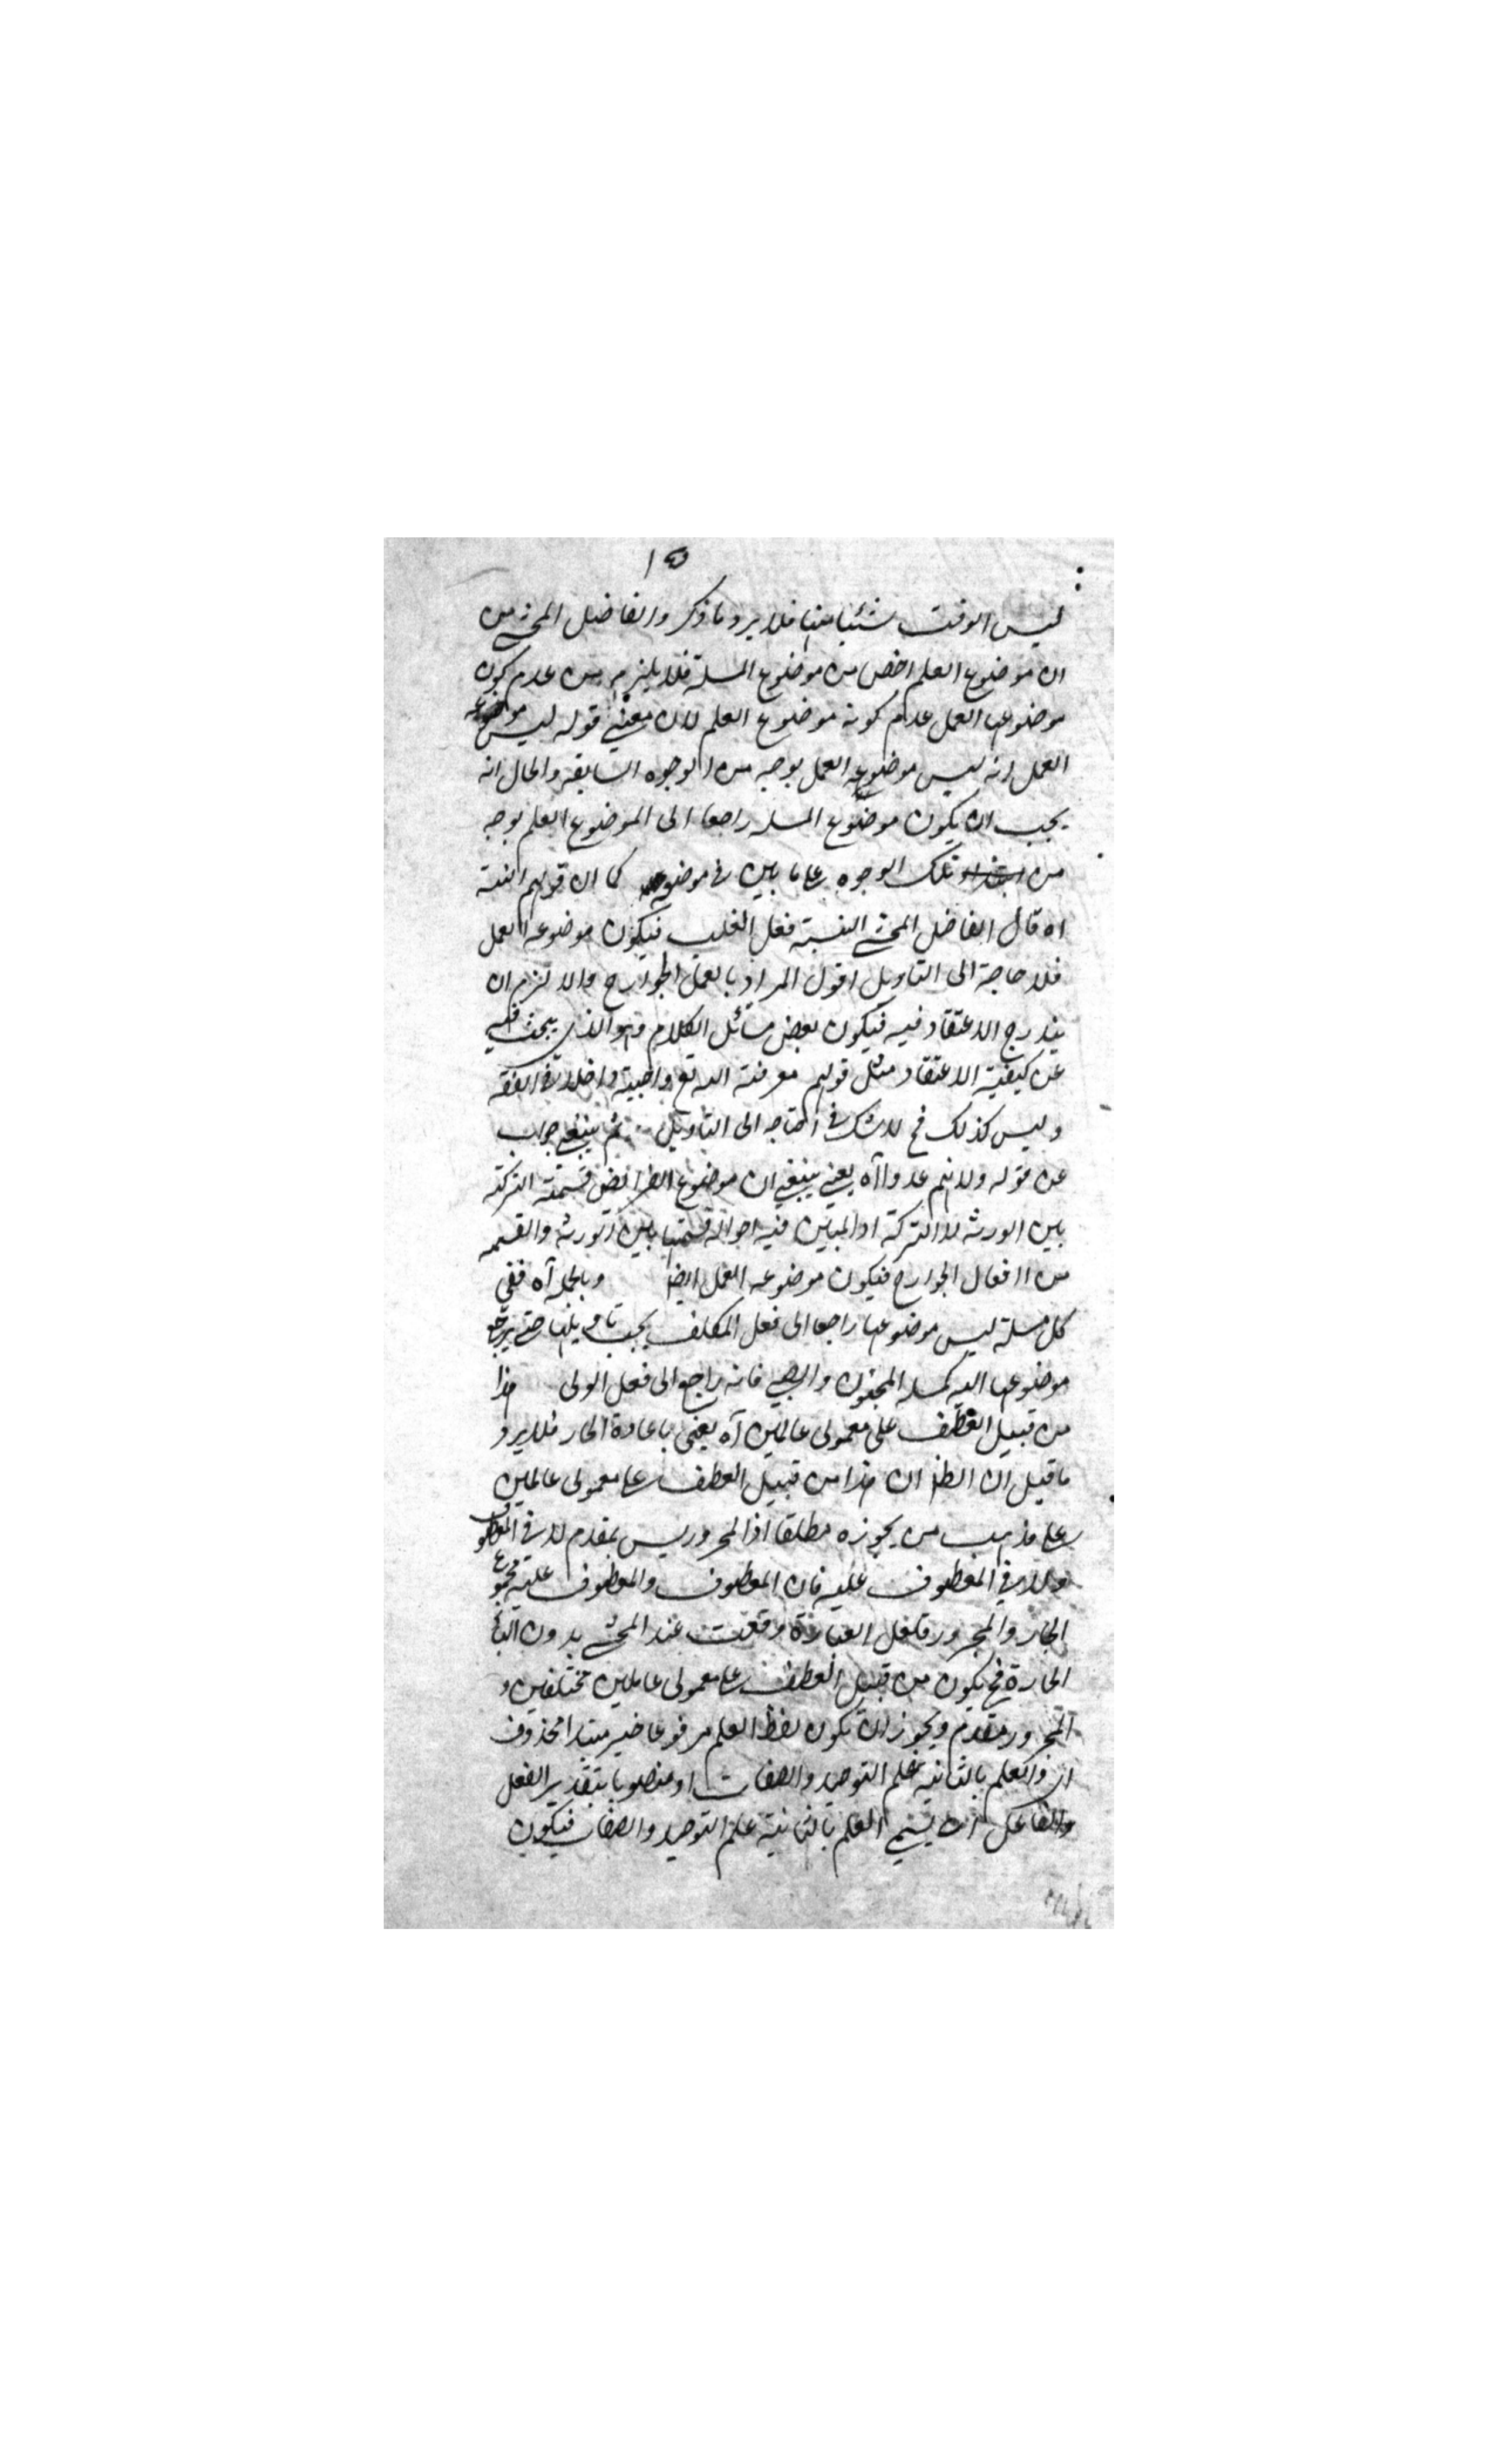 ١٥
ليس الوقت شيئا منها فلا يرد ما ذكر والفاضل المحشي من
ان موضوع العلم اخص من موضوع المسلة فلا يلزم من عدم كون
موضوعها العمل عدم كونه موضوع العلم لان معنى قوله ليس موضوعه
العمل انه ليس موضوعه العمل بوجه من الوجوه السابقة والحال انه
يجب ان يكون موضوع المسله راجعا الى الموضوع العلم بوجه
من تلك الوجوه على ما بين في موضوعه كما ان قولهم النية
اه قال الفاضل المحشي النية فعل القلب فيكون موضوعه العمل
فلا حاجة الى التاويل اقول المراد بالعمل الجوارح والا لزم ان
يندرج الاعتقاد فيه فيكون بعض مسائل الكلام وهو الذي يبحث فيه
عن كيفية الاعتقاد مثل قولهم معرفة الله تع واجبة داخلا في الفقه
وليس كذلك فح لا شك في احتاجه الى التاويل ثم ينبغي جواب
عن قوله ولانهم عدوا آه يعني ينبغي ان موضوع الفرائض قسمة التركة
بين الورثة لا التركة اذ المبين فيه احوال قسمتها بين الورثة والقسمه
من اافعال الجوارح فيكون موضوعه العمل ايضا وبالجملة آه ففي
كل مسلة ليس موضوعها راجعا الى فعل المكلف يجب تاويلها حتى يرجع
موضوعها اليه كمسلة المجنون والصبي فانه راجع الى فعل الولى هذا
من قبيل العطف على معمولى عاملين آه يعنى باعادة الجار فلا يرد
ما قيل ان الظ ان هذا من قبيل العطف على معمولى عاملين
على مذهب من يجوزه مطلقا اذ المجرور ليس بمقدم لا في المعطوف
ولا في المعطوف عليه فان المعطوف والمعطوف عليه مجموع
الجار والمجرور فلعل العبارة وقعت عند المحشي بدون الباء
الجارة فح يكون من قبيل العطف على معمولى عاملين مختلفين و
المجرور مقدم ويجوز ان يكون لفظ العلم مرفوعا خبر مبتدا محذوف
اى والعلم بالثانية علم التوحيد والصفات او منصوبا بتقدير الفعل
والفاعل اى يسمى العلم بالثانية علم التوحيد والصفات فيكون